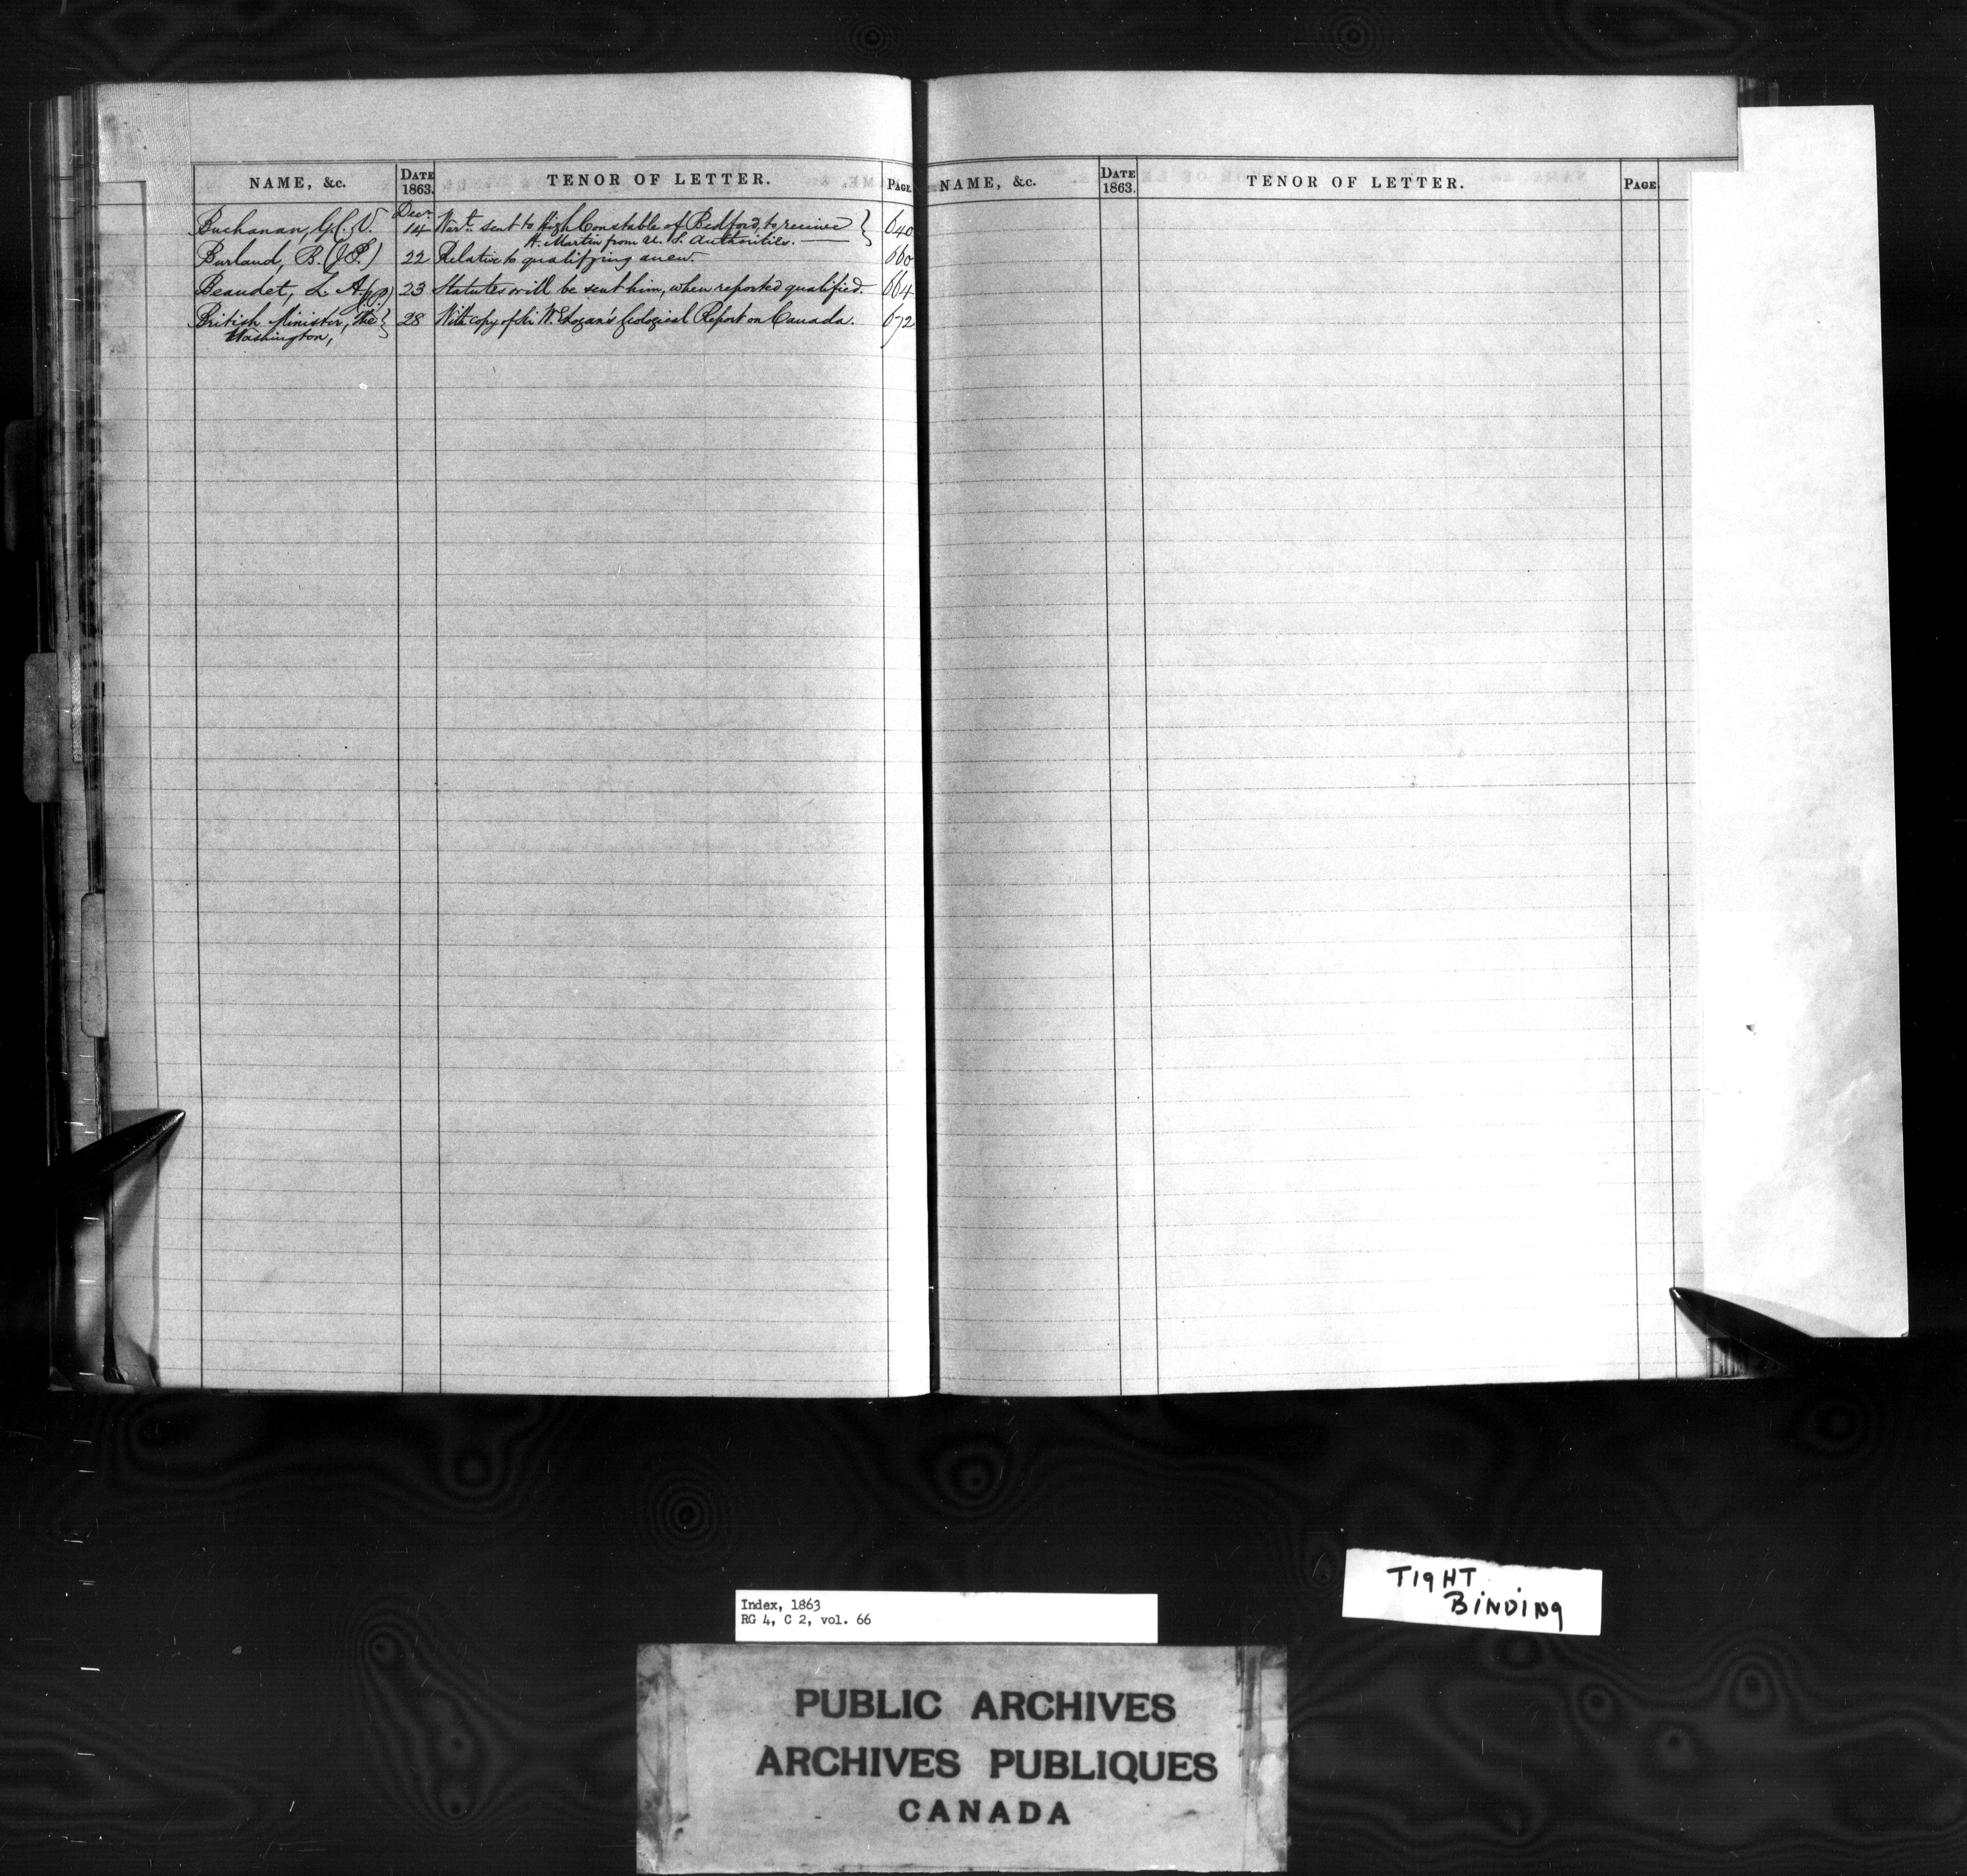 NAME, &c. DATE 1863. TENOR OF LETTER. PAGE.
Decr.
Buchanan, G. C. V. 14 Wart. sent to High Constable of Bedford, to receive } 640
H. Martin from U. S. Authorities.
Burland, B. (J.P.) 22 Relative to qualifying anew. 660
Beaudet, L. A. (J.P.) 23 Statutes will be sent him, when reported qualified. 664
British Minister, The } 28 With copy of Sir W. E. Logan's Geological Report on Canada. 672
Washington,
NAME, &c. DATE 1863. TENOR OF LETTER. PAGE
TIGHT
BINDING
Index, 1863
RG 4, C 2, vol. 66
PUBLIC ARCHIVES
ARCHIVES PUBLIQUES
CANADA